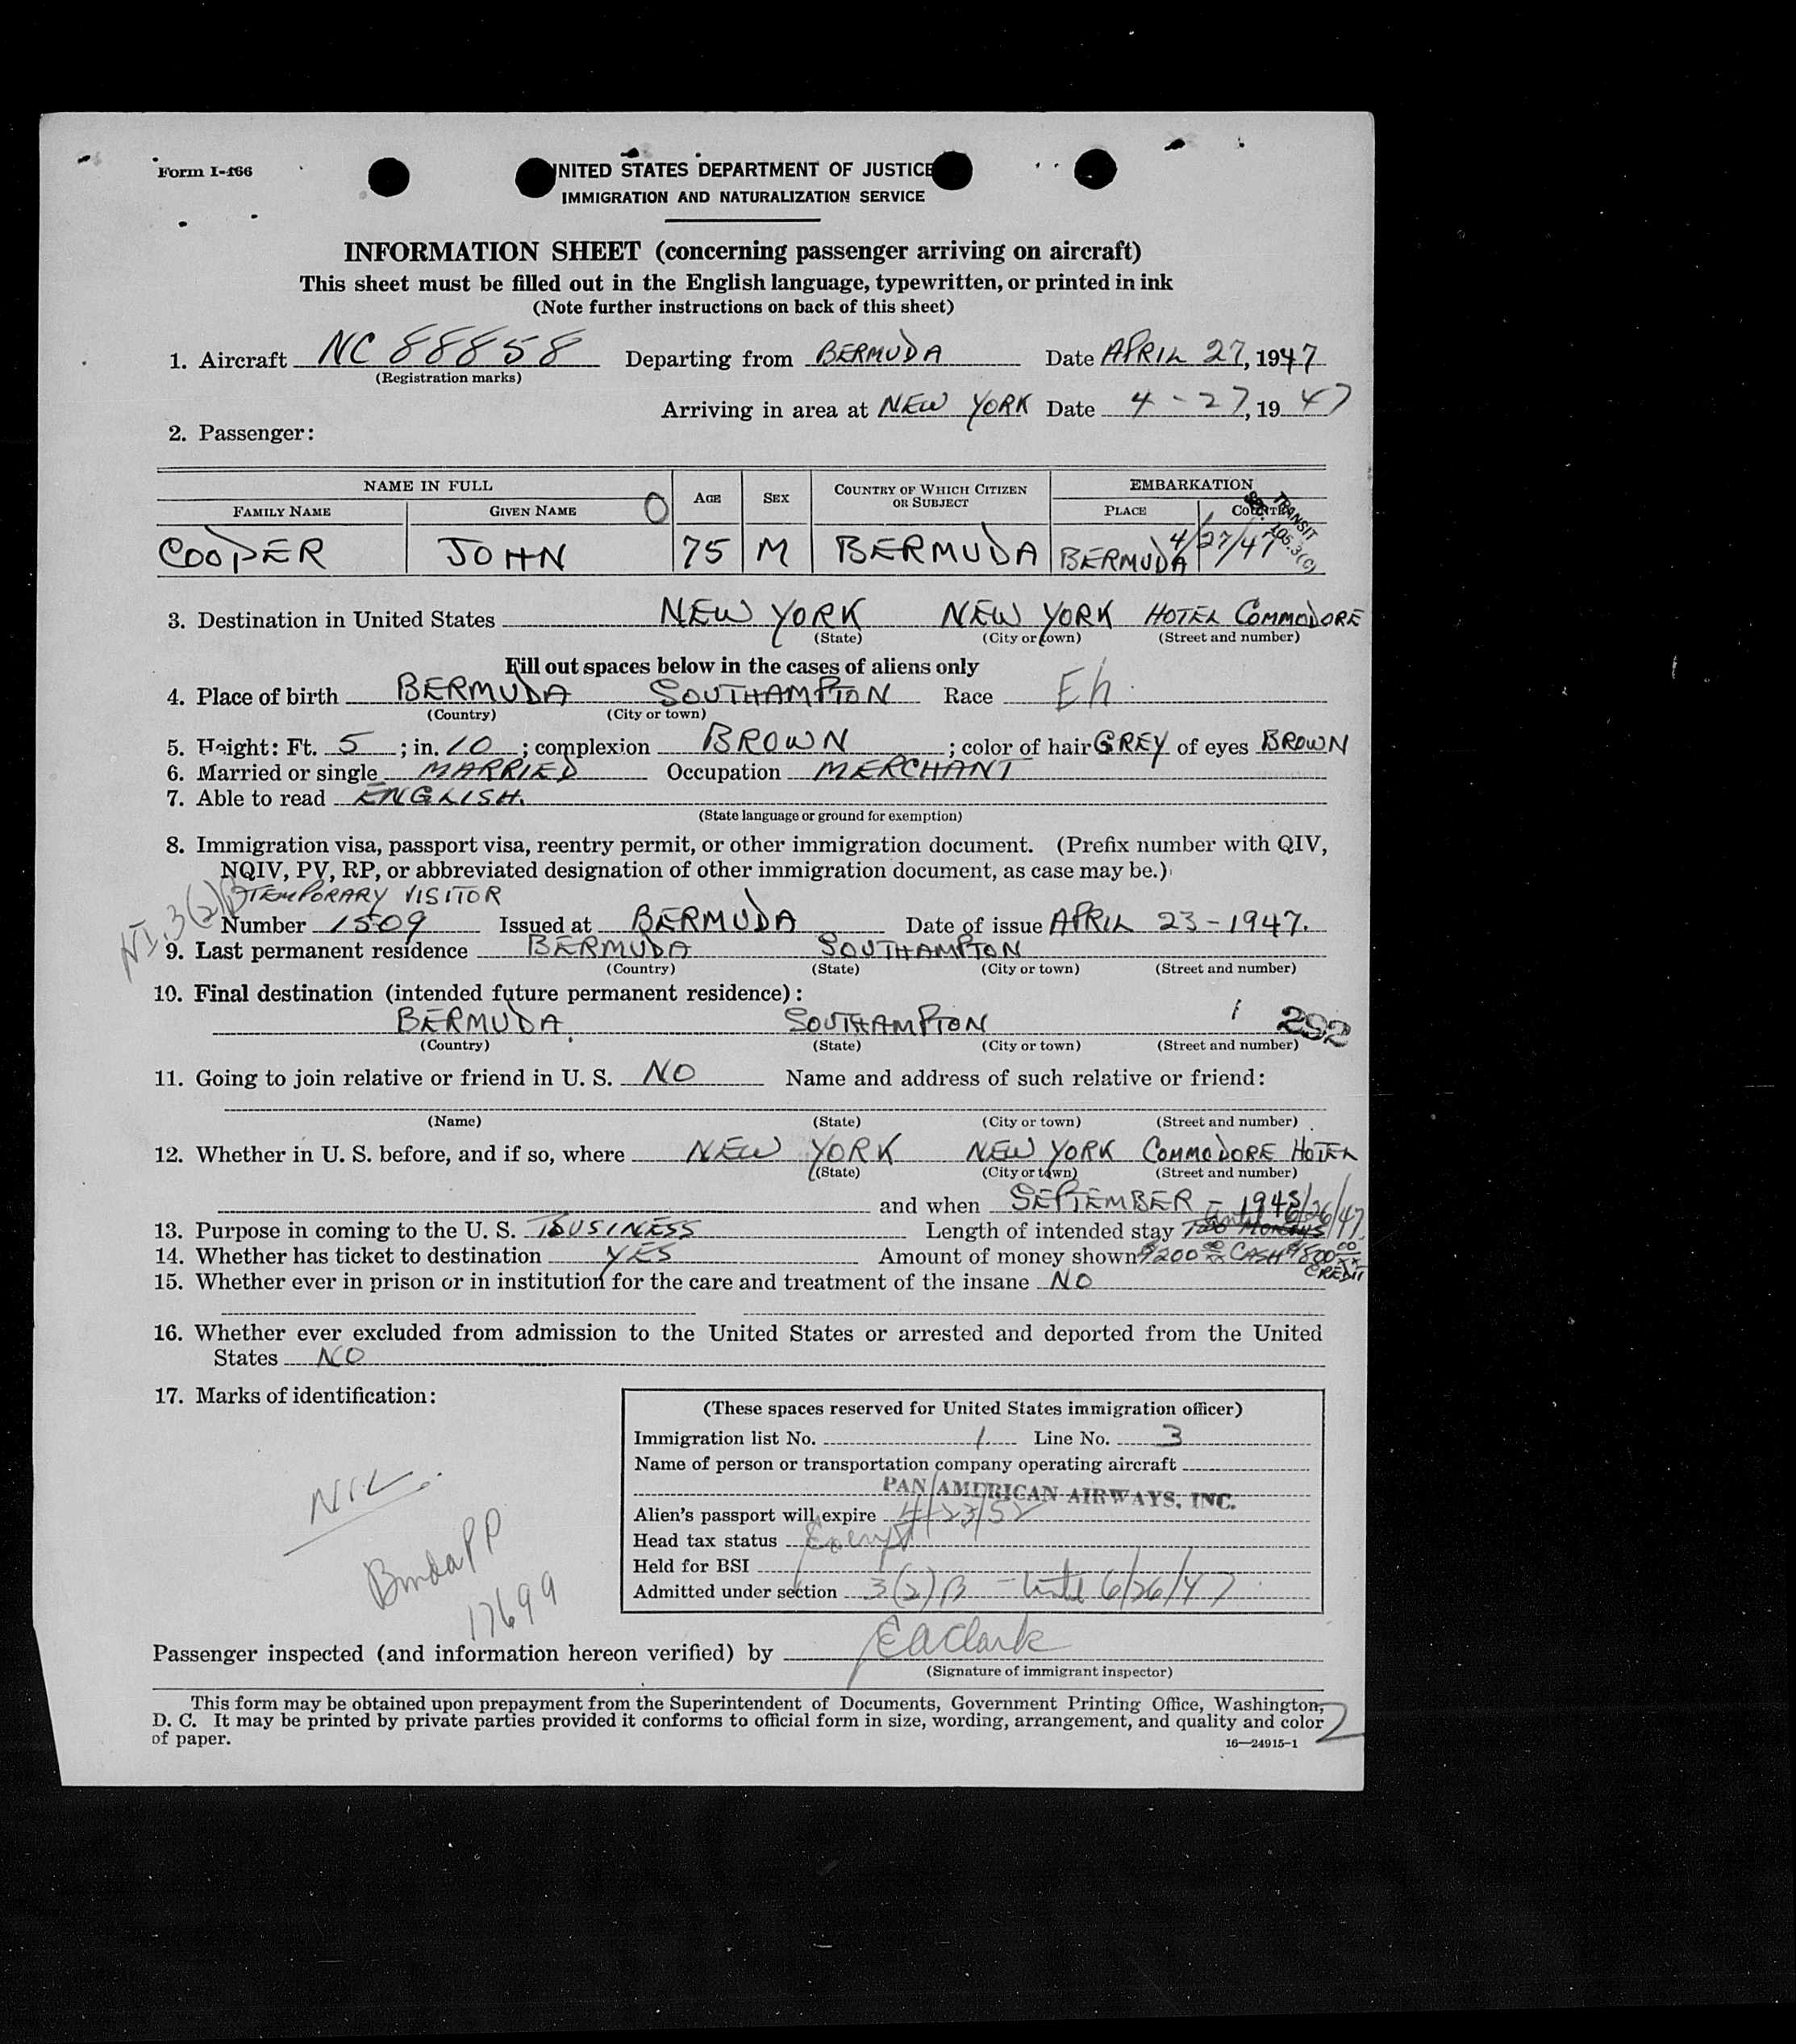 Form I-466
UNITED STATES DEPARTMENT OF JUSTICE
IMMIGRATION AND NATURALIZATION SERVICE
INFORMATION SHEET (concerning passenger arriving on aircraft)
This sheet must be filled out in the English language, typewritten, or printed in ink
(Note further instructions on back of this sheet)
1. Aircraft NC 88858 Departing from BERMUDA Date APRIL 27, 1947
(Registration marks)
Arriving in area at NEW YORK Date 4-27, 1947
2. Passenger:
NAME IN FULL O AGE SEX COUNTRY OF WHICH CITIZEN OR SUBJECT EMBARKATION
FAMILY NAME GIVEN NAME PLACE COUNTRY
TRANSIT
SEC. 105.3(C)
4/27/47
COOPER JOHN 75 M BERMUDA BERMUDA
3. Destination in United States NEW YORK NEW YORK HOTEL COMMODORE
(State) (City or town) (Street and number)
Fill out spaces below in the cases of aliens only
4. Place of birth BERMUDA SOUTHAMPTON Race
(Country) (City or town)
5. Height: Ft. 5; in. 10; complexion BROWN; color of hair GREY of eyes BROWN
6. Married or single MARRIED Occupation MERCHANT
7. Able to read ENGLISH.
(State language or ground for exemption)
8. Immigration visa, passport visa, reentry permit, or other immigration document. (Prefix number with QIV,
NQIV, PV, RP, or abbreviated designation of other immigration document, as case may be.)
3(2)B TEMPORARY VISITOR
Number 1509 Issued at BERMUDA Date of issue APRIL 23-1947.
9. Last permanent residence BERMUDA SOUTHAMPTON
(Country) (State) (City or town) (Street and number)
10. Final destination (intended future permanent residence):
BERMUDA SOUTHAMPTON 1 292
(Country) (State) (City or town) (Street and number)
11. Going to join relative or friend in U. S. NO Name and address of such relative or friend:
(Name) (State) (City or town) (Street and number)
12. Whether in U. S. before, and if so, where NEW YORK NEW YORK COMMODORE HOTEL
(State) (City or town) (Street and number)
and when SEPTEMBER - 1945
until 6/26/47
13. Purpose in coming to the U. S. BUSINESS Length of intended stay TWO MONTHS
14. Whether has ticket to destination YES Amount of money shown $200 00/xx CASH $800 00/xx CREDIT
15. Whether ever in prison or in institution for the care and treatment of the insane NO
16. Whether ever excluded from admission to the United States or arrested and deported from the United
States NO
17. Marks of identification:
NIL.
Bmda PP
17699
(These spaces reserved for United States immigration officer)
Immigration list No. 1 Line No. 3
Name of person or transportation company operating aircraft
PAN AMERICAN AIRWAYS, INC.
Alien's passport will expire 4/23/52
Head tax status Exempt
Held for BSI
Admitted under section 3(2)B - Until 6/26/47
Passenger inspected (and information hereon verified) by EAClark
(Signature of immigrant inspector)
This form may be obtained upon prepayment from the Superintendent of Documents, Government Printing Office, Washington,
D. C. It may be printed by private parties provided it conforms to official form in size, wording, arrangement, and quality and color
of paper.
2
16—24915-1